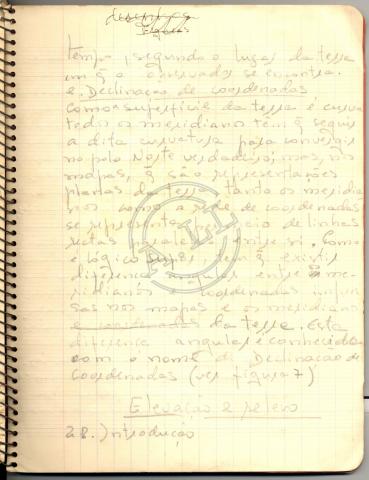 desenhos
tempo, segundo o lugar da terra
em q̃ o observador se encontra.
e. Declinação de coordenadas
Como a superficie da terra é curva
todos os meridianos têm q̃ seguir
a dita curvatura para convergir
no polo Norte verdadeiro; mas, nos
mapas, q̃ são representações
planas da terra tanto os meridia
nos como a rede de coordenadas
se representam por meio de linhas
retas paralelas entre si. Como
é lógico supor, tem q̃ existir
diferença angular entre os me-
ridianos coordenadas impre
sas nos mapas e os meridianos
e coordenadas da terra. Esta
diferença angular é conhecida
com o nome de Declinação de
coordenadas (ver figura 7)
Elevação e relevo
28.) ntrodução